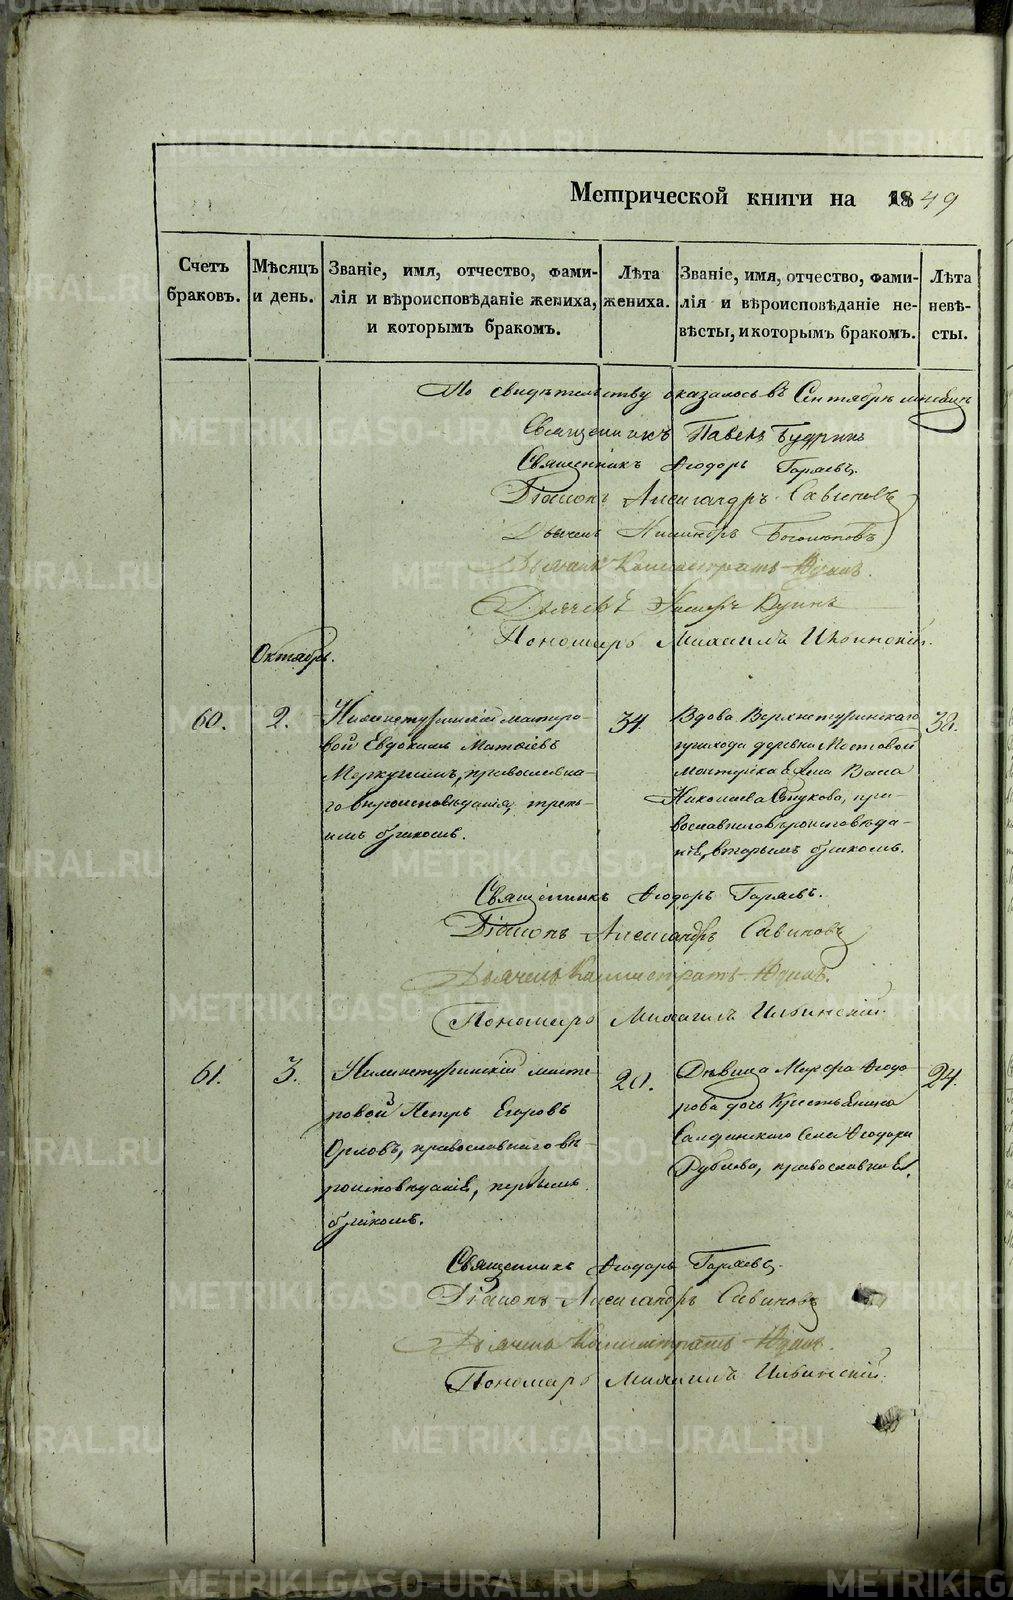 METRIKI.GASO-URAL.RU
Метрической книги на 1849
Счетъ браковъ.
Мѣсяцъ и день.
Званіе, имя, отчество, фами-
лія и вѣроисповѣданіе жениха,
и которымъ бракомъ.
Лѣта жениха.
Званіе, имя, отчество, фами-
лія и вѣроисповѣданіе не-
вѣсты, и которымъ бракомъ.
Лѣта невѣ-
сты.
По свидѣтельству оказалось въ Сентябрѣ
Священникъ Павелъ Будринъ
Священникъ Ѳеодоръ Гаряевъ.
Діаконъ Александръ Савиновъ
Дьячекъ
Дьячекъ Каллистратъ Юдинъ.
Дьячекъ
Пономарь Михаилъ Ильинскій.
Октябрь.
60.
2.
Нижнетуринскій мастеро-
вой Евдокимъ Матвіевъ
Меркушинъ, православна-
го вѣроисповѣданія, треть-
имъ бракомъ.
34.
Вдова Верхнетуринскаго
прихода деревни Мостовой
Николаева Стукова, пра-
вославнаго вѣроисповѣда-
нія, вторымъ бракомъ.
38.
Священникъ Ѳеодоръ Гаряевъ.
Діаконъ Александръ Савиновъ
Дьячекъ Каллистратъ Юдинъ.
Пономарь Михаилъ Ильинскій.
61.
3.
Нижнетуринскій масте-
ровой Петръ Егоровъ
Орловъ, православнаго вѣ-
роисповѣданія, первымъ
бракомъ.
20.
Дѣвица Ѳеодо-
рова дочь Крестьянина
Салдинскаго Села Ѳеодора
православная.
24.
Священникъ Ѳеодоръ Гаряевъ.
Діаконъ Александръ Савиновъ
Дьячекъ Каллистратъ Юдинъ.
Пономарь Михаилъ Ильинскій.